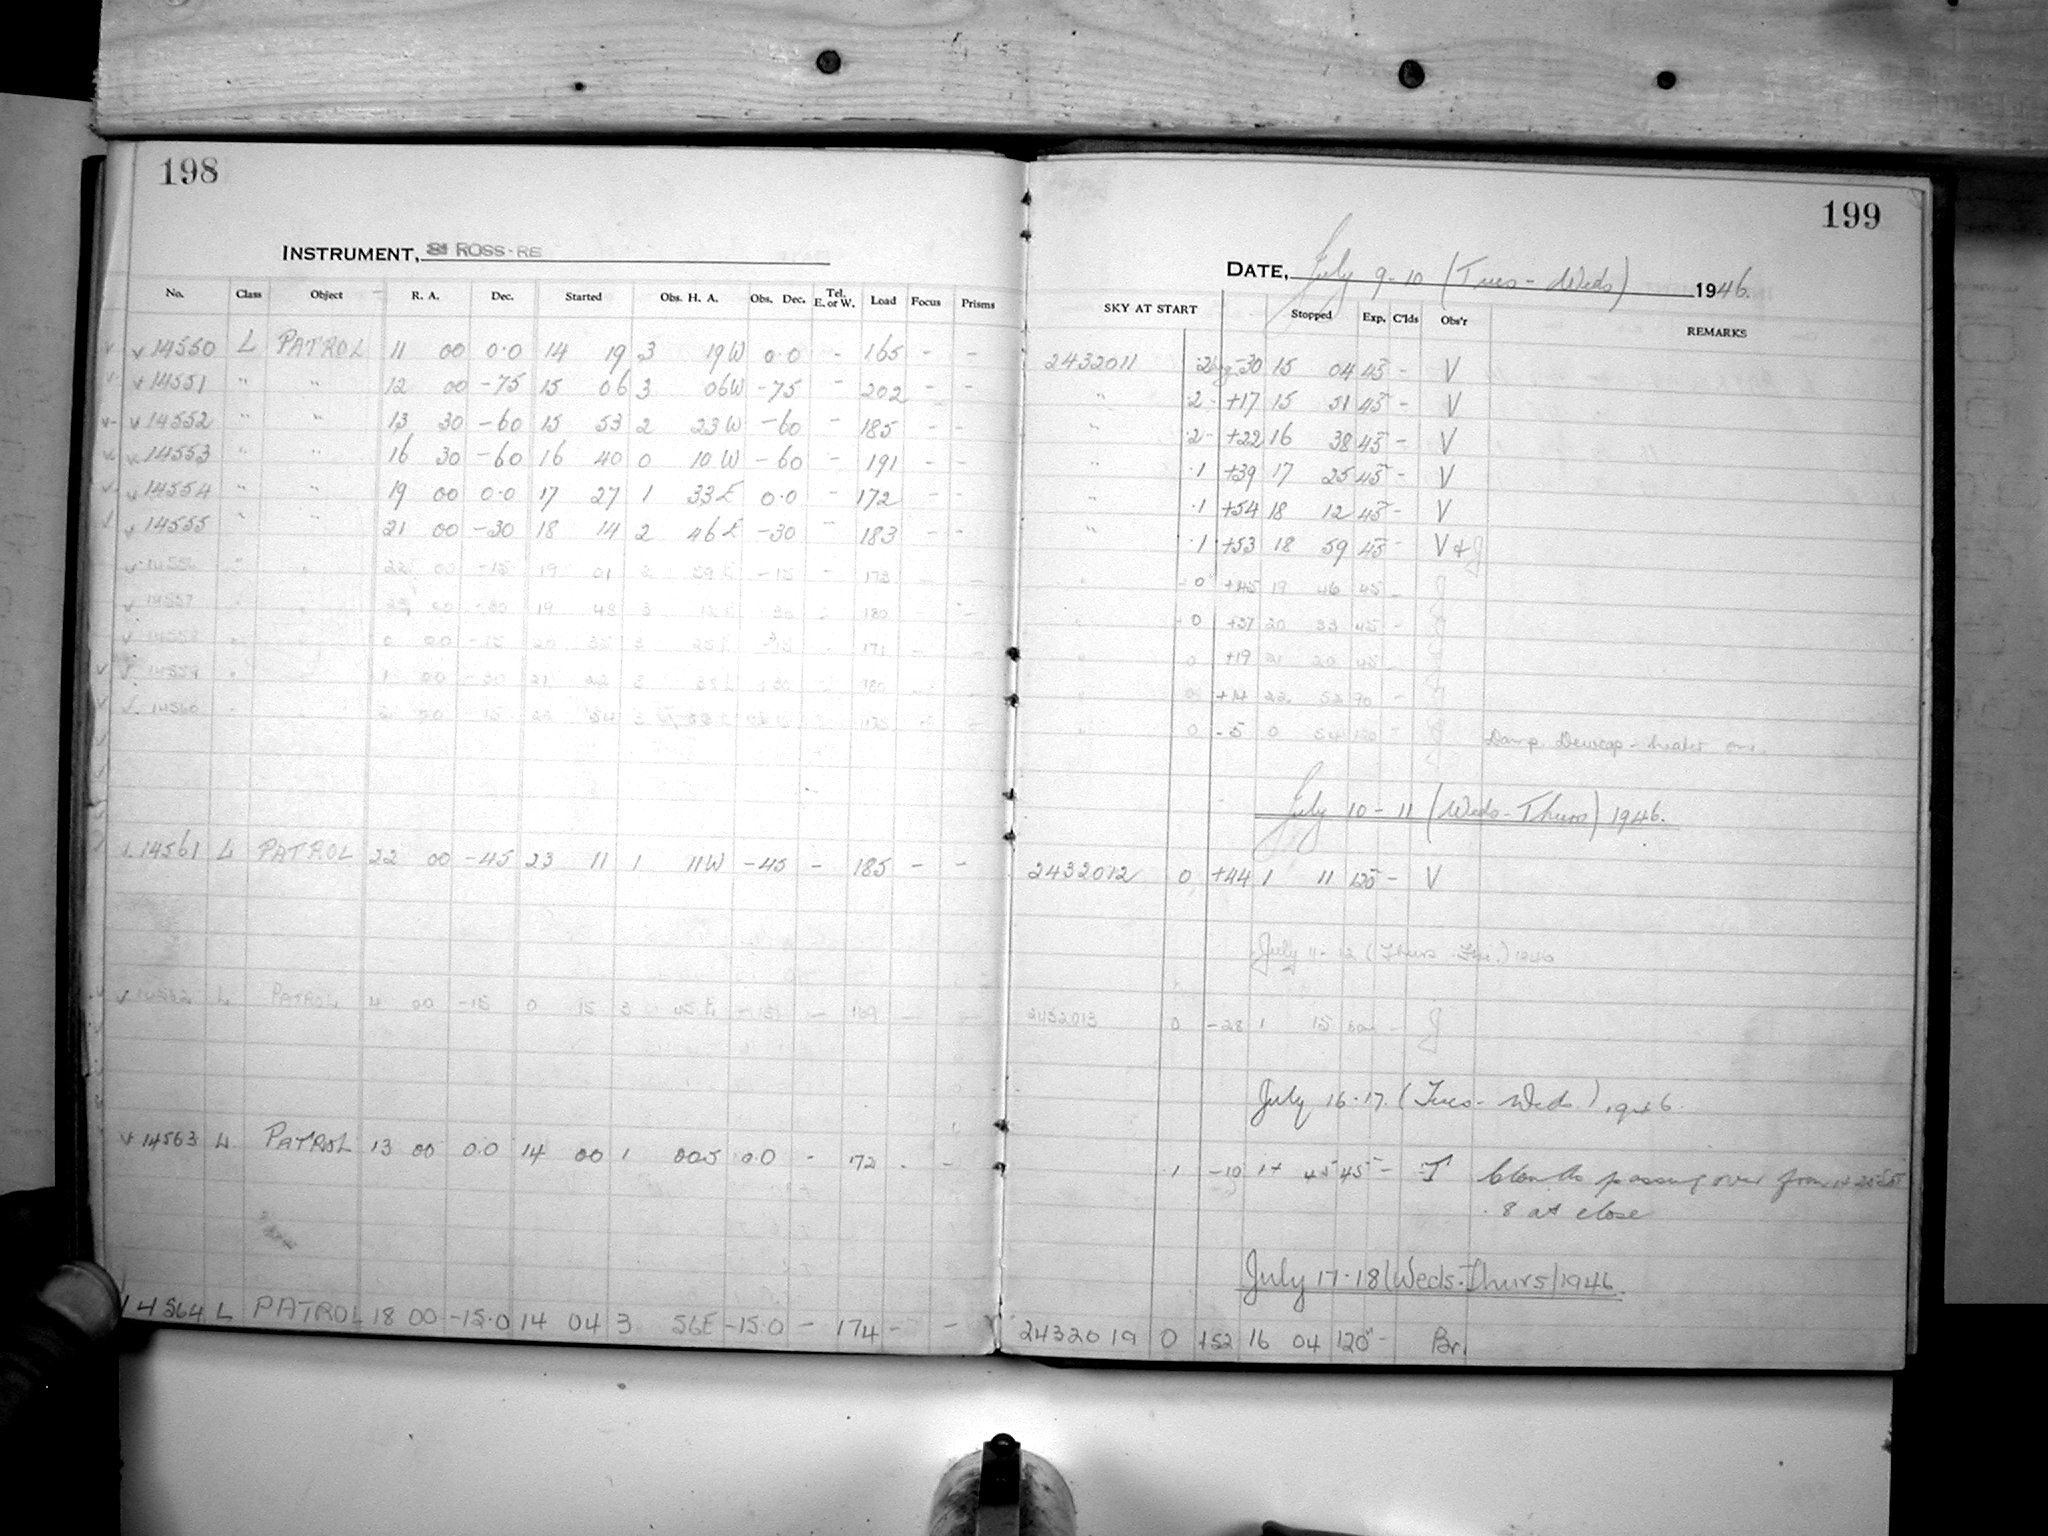 198
INSTRUMENT, ROSS-RE
No. Class Object R. A. Dec. Started Obs. H. A. Obs. Dec. Tel. E. or W. Load Focus Prisms
14550 L PATROL 11 00 0.0 14 19 3 19W 0.0 - 165 - -
14551 " " 12 00 -75 15 06 3 06W -75 - 202 - -
14552 " " 13 30 -60 15 53 2 23W -60 - 185 - -
14553 " " 16 30 -60 16 40 0 10W -60 - 191 - -
14554 " " 19 00 0.0 17 27 1 33E 0.0 - 172 - -
14555 " " 21 00 -30 18 14 2 46E -30 - 183 - -
14556 00 -15 19 01 -15 - 173
14557 00 -30 19 48 3 30 180
14558 0 00 -15 20 35 3 25E 171
14559 1 00 -30 21 22 3 180
14560 00 15 54 3
14561 L PATROL 22 00 -45 23 11 1 11W -45 - 185 - -
14562 L PATROL 4 00 -15 0 15 3 45E -15 - 169 - -
14563 L PATROL 13 00 0.0 14 00 1 00.5 0.0 - 72 - -
14564 L PATROL 18 00 -15.0 14 04 3 56E -15.0 - 174 - -
199
DATE, July 9-10 (Tues - Weds) 1946.
SKY AT START Stopped Exp. C'lds Obs'r REMARKS
2432011 -30 15 04 45 - V
" .2 +17 15 51 45 - V
" .2 +22 16 38 45 - V
" .1 +39 17 25 45 - V
" .1 +54 18 12 45 - V
" .1 +53 18 59 45 - V & J
" 0 +45 19 46 45 - J
" 0 +37 20 33 45 - J
" 0 +19 21 20 45 - J
" 0 +14 22 52 90 - J
" 0 -5 0 54 120 - J Damp. Dewcap-heater on.
July 10-11 (Weds-Thurs) 1946.
2432012 0 +44 1 11 120 - V
July 11-12 (Thurs-Fri.) 1946
2432013 0 -28 1 15 60 - J
July 16-17. (Tues - Weds.) 1946.
.1 -10 14 45 45 - J Clouds passing over from
.8 at close
July 17-18 (Weds-Thurs) 1946.
2432019 0 +52 16 04 120 - Br.